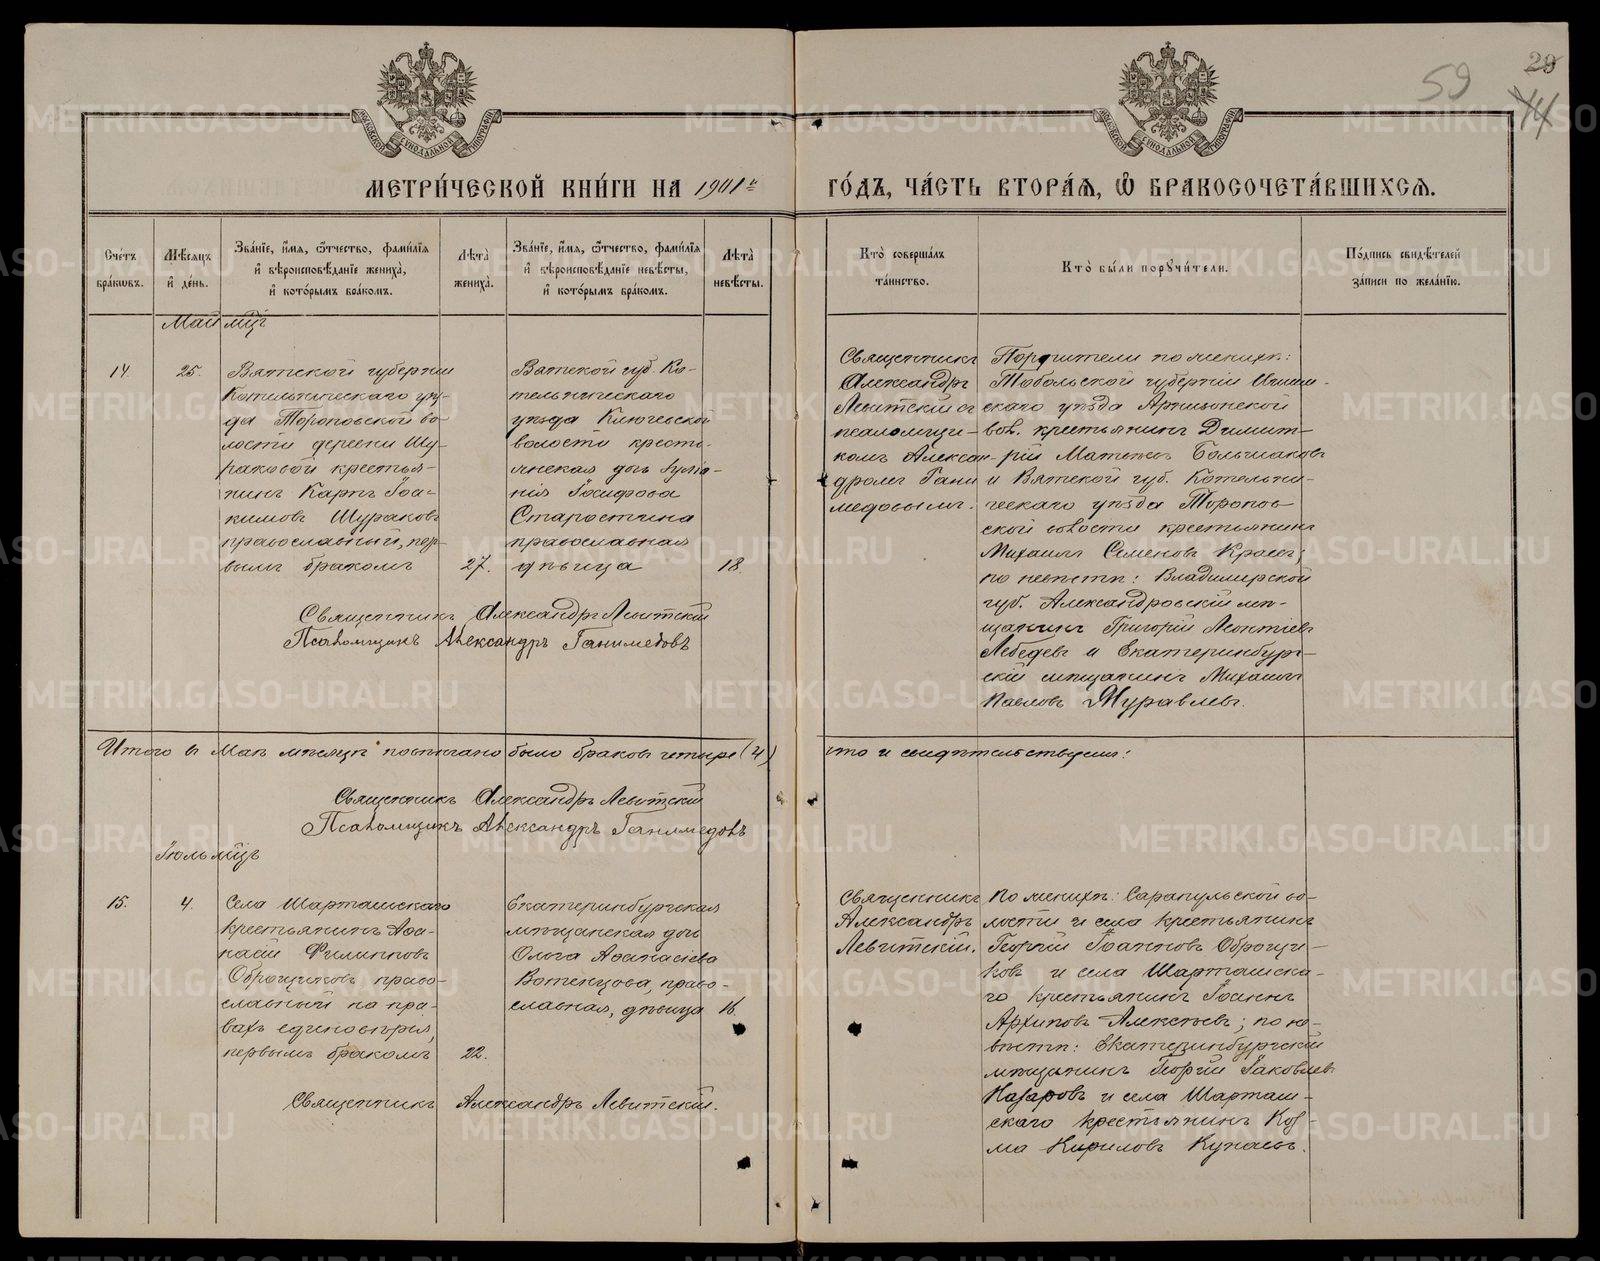 59
29
14
МОСКОВСКОЙ СУНОДАЛЬНОЙ ТИПОГРАФІИ
МОСКОВСКОЙ СУНОДАЛЬНОЙ ТИПОГРАФІИ
МЕТРИ́ЧЕСКОЙ КНИ́ГИ НА 1901й
ГО́ДЪ, ЧА́СТЬ ВТОРА́Я, Ѿ БРАКОСОЧЕТА́ВШИХСЯ.
Сче́тъ
бра́кѡвъ.
Мѣ́сяцъ
и҆ де́нь.
Зва́нїе, и҆́мя, ѻ҆́тчество, фами́лїя
и҆ вѣроисповѣ́данїе жениха̀,
и҆ кото́рымъ бра́комъ.
Лѣ́та̀
жениха̀.
Зва́нїе, и҆́мя, ѻ҆́тчество, фами́лїя
и҆ вѣроисповѣ́данїе невѣ́сты,
и҆ кото́рымъ бра́комъ.
Лѣ́та̀
невѣ́сты.
Кто̀ соверша́лъ
та́инство.
Кто̀ бы́ли порꙋчи́тели.
По́дпись свидѣ́телей
за́писи по жела́нїю.
Май мц҃ъ
14.
25.
Вятской губерніи
Котельническаго уѣз-
да Тороповской во
лости деревни Шу-
раковой крестья-
нинъ Карпъ Іоа-
кимовъ Шураковъ
православный, пер-
вымъ бракомъ
27.
Вятской губ. Ко-
тельническаго
уѣзда Ключевской
волости кресть-
янская дочь
Іосифова
Старостина
православная
дѣвица
18.
Священникъ
Александръ
Левитскій съ
псаломщи-
комъ Алексан-
дромъ Гани
медовымъ.
Поручители по женихѣ:
Тобольской губерніи Ишим-
скаго уѣзда Армизонской
вол. крестьянинъ Димит-
рій Матѳеевъ Большаковъ
и Вятской губ. Котельни-
ческаго уѣзда Торопов
ской волости крестьянинъ
Михаилъ Семеновъ Краевъ;
по невѣстѣ: Владимирской
губ. Александровскій мѣ-
щанинъ Григорій Леонтіевъ
Лебедевъ и Екатеринбург-
скій мѣщанинъ Михаилъ
Павловъ Журавлевъ.
Священникъ Александръ Левитскій
Псаломщикъ Александръ Ганимедовъ
Итого въ Маѣ мѣсяцѣ повѣнчано было браковъ четыре (4)
что и свидѣтельствуемъ:
Священникъ Александръ Левитскій
Псаломщикъ Александръ Ганимедовъ
Іюль мц҃ъ
15.
4.
Села Шарташскаго
крестьянинъ Аѳа-
насій Филипповъ
Оброщиковъ право-
славный на пра-
вахъ единовѣрія,
первымъ бракомъ
22.
Екатеринбургская
мѣщанская дочь
Ольга Аѳанасіева
Вотенцова, право-
славная, дѣвица
16.
Священникъ
Александръ
Левитскій.
По женихѣ: Сарапульской во-
лости и села крестьянинъ
Георгій Іоанновъ Оброщи-
ковъ и села Шарташска-
го крестьянинъ Іоаннъ
Архиповъ Алексѣевъ; по не-
вѣстѣ: Екатеринбургскій
мѣщанинъ Георгій Іаковлевъ
Назаровъ и села Шарташ-
скаго крестьянинъ Коз-
ма Кириловъ Кунаевъ.
Священникъ Александръ Левитскій.
METRIKI.GASO-URAL.RU